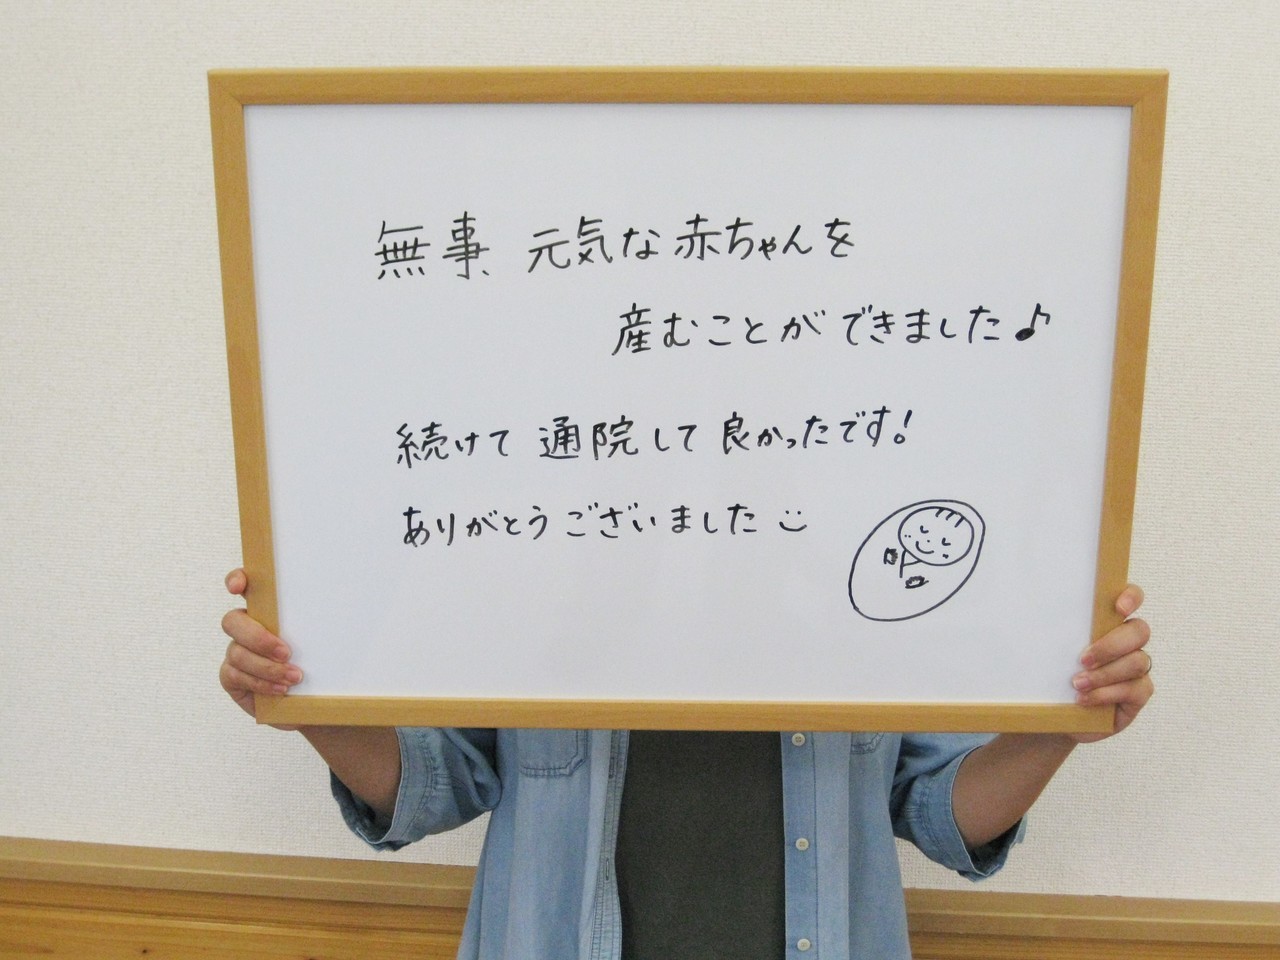 無事 元気な赤ちゃんを
産むことができました♪
続けて 通院して 良かったです!
ありがとうございました